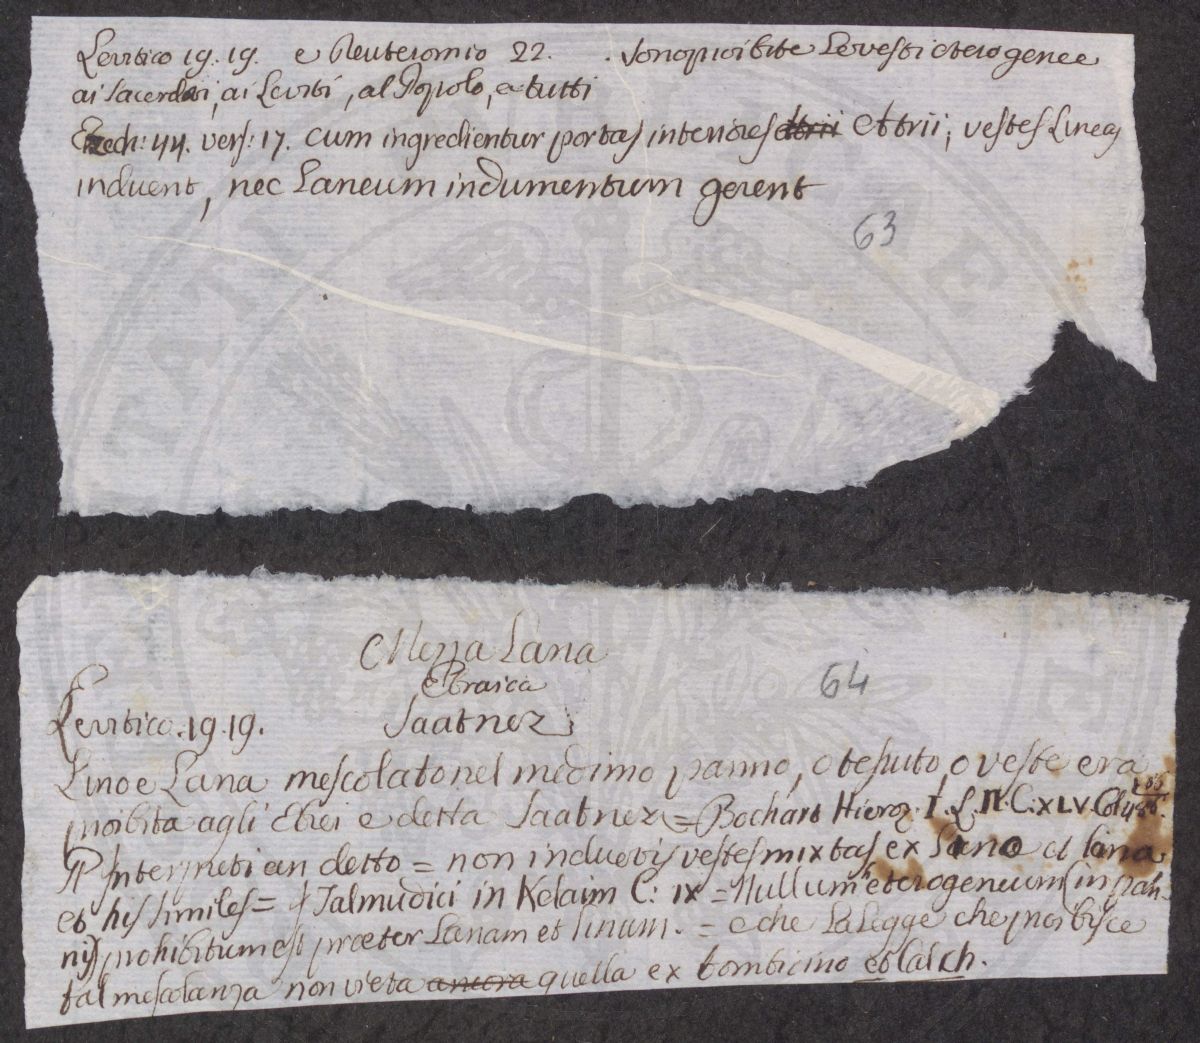 Levitico 19. 19. e Deuteromio 22. . Sono proibite Le vesti eterogenee
ai Sacerdoti, ai Leviti, al Popolo, e a tutti
Ezech: 44. vers: 17. cum ingredientur portas interiores atrii et trii, vestes Lineas
induent, nec Laneum indumentum gerent
63
Mezza Lana
64
Ebraica
Levitico. 19 19. Saatnez
Lino e Lana mescolato nel medimo panno, o tesuto, o veste era
proibita agli Ebrei e detta Saatnez = Bochart Hieroz. I. L. II. C. XLV. Col 486.
Interpreti an detto = non induetis vestes mixtas ex Lana et lana
et his similes = I Talmudici in Kelaim C: IX = Nullum eterogeneum (in pan-
nis) prohibitum est præter Lanam et linum. = e che La Legge che proibisce
tal mescolanza non vieta ancora quella ex bombicino et